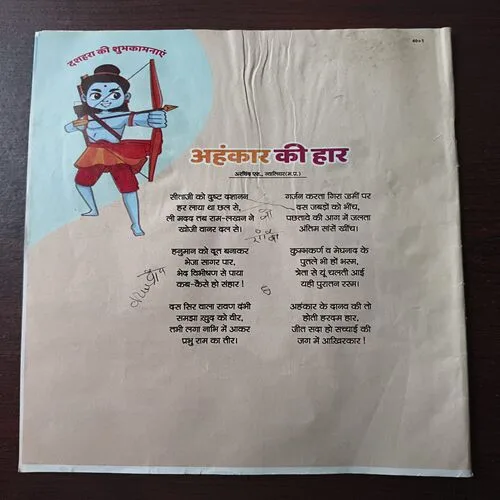 40+1
दशहरा की शुभकामनाएं
अहंकार की हार
अरविंद एस., ग्वालियर(म.प्र.)
सीताजी को दुष्ट दशानन
हर लाया था छल से,
ली मदद तब राम-लखन ने
खोजी वानर दल से।
हनुमान को दूत बनाकर
भेजा सागर पार,
भेद विभीषण से पाया
कब-कैसे हो संहार !
दस सिर वाला रावण दंभी
समझा खुद को वीर,
तभी लगा नाभि में आकर
प्रभु राम का तीर।
गर्जन करता गिरा जमीं पर
दस जबड़ों को भींच,
पछतावे की आग में जलता
अंतिम सांसें खींच।
कुम्भकर्ण व मेघनाद के
पुतले भी हों भस्म,
त्रेता से यूं चलती आई
यही पुरातन रस्म।
अहंकार के दानव की तो
होती हरदम हार,
जीत सदा हो सच्चाई की
जग में आखिरकार !